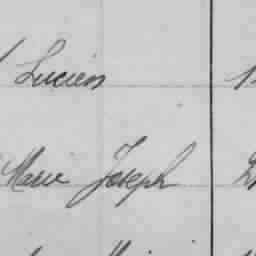 Lucien
Marie Joseph